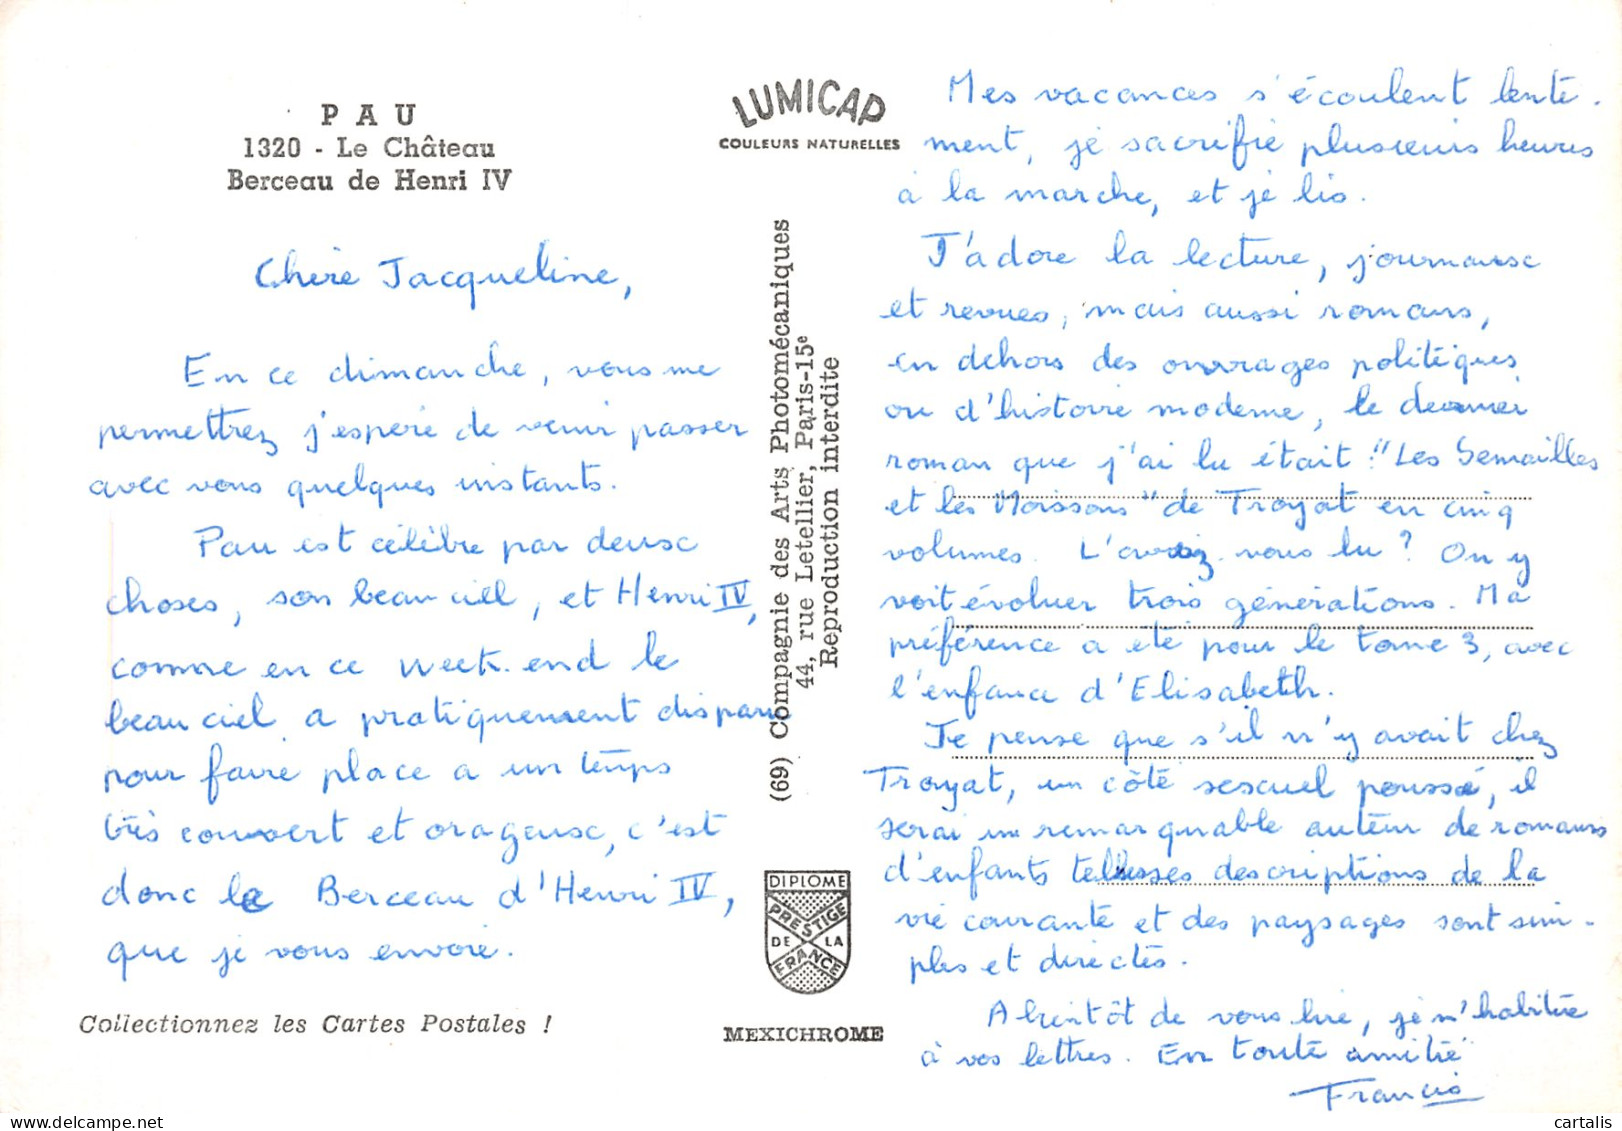 PAU
1320 - Le Château
Berceau de Henri IV
Chère Jacqueline,
En ce dimanche, vous me
permettrez j'espère de venir passer
avec vous quelques instants.
Pau est célèbre par deux
choses, son beau ciel, et Henri IV,
comme en ce week-end le
beau ciel a pratiquement disparu
pour faire place a un temps
très couvert et orageux, c'est
donc le Berceau d'Henri IV,
que je vous envoie.
Collectionnez les Cartes Postales !
LUMICAP
COULEURS NATURELLES
(69) Compagnie des Arts Photomécaniques
44, rue Letellier, Paris-15e
Reproduction interdite
DIPLOME
PRESTIGE
DE LA
FRANCE
MEXICHROME
Mes vacances s'écoulent lente-
ment, je sacrifie plusieurs heures
à la marche, et je lis.
J'adore la lecture, journaux
et revues, mais aussi romans,
en dehors des ouvrages politiques
ou d'histoire moderne, le dernier
roman que j'ai lu était "Les Semailles
et les Moissons" de Troyat en cinq
volumes. L'avez vous lu ? On y
voit évoluer trois générations. Ma
préférence a été pour le tome 3, avec
l'enfance d'Elisabeth.
Je pense que s'il n'y avait chez
Troyat, un côté sexuel poussé, il
serai un remarquable auteur de romans
d'enfants ses descriptions de la
vie courante et des paysages sont sim-
ples et directes.
A bientôt de vous lire, je m'habitue
à vos lettres. En toute amitié
Francis
cartalis
www.delcampe.net